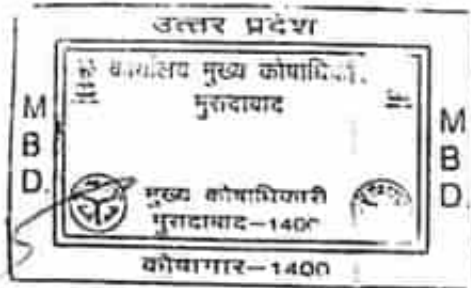 उत्तर प्रदेश
कार्यालय मुख्य कोषाधिका
मुरादाबाद
M
B
D.
M
B
D.
मुख्य कोषाधिकारी
मुरादाबाद–1400
कोषागार–1400